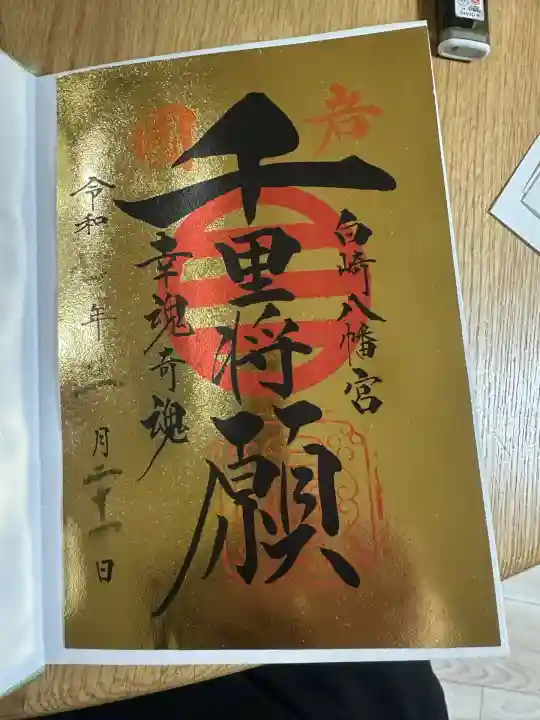 岩
国
白崎八幡宮
千里将願
幸魂奇魂
令和 年 月二十一日